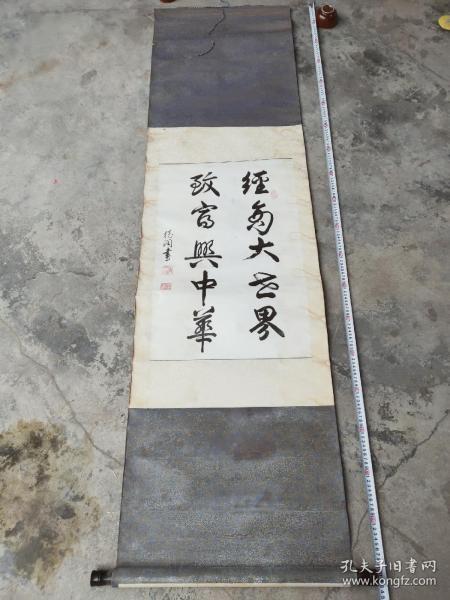 經商大世界
致富興中華
書
孔夫子旧书网
www.kongfz.com